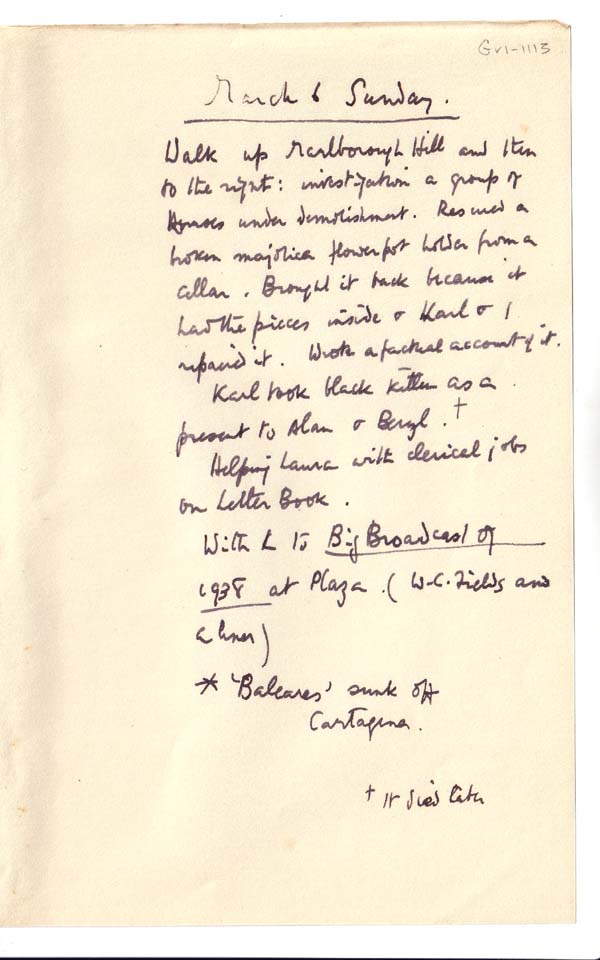 Gv1-1113
March 6 Sunday.
Walk up Marlborough Hill and then
to the right: investigation a group of
houses under demolishment. Rescued a
broken majolica flowerpot holder from a
cellar. Brought it back because it
had the pieces inside & Karl & I
repaired it. Wrote a factual account of it.
Karl took black kitten as a
present to Alan & Beryl. †
Helping Laura with clerical jobs
on Letter Book.
With L to Big Broadcast of
1938 at Plaza. (W.C. Fields and
a liner)
* 'Baleares' sunk off
Cartagena.
† It died later